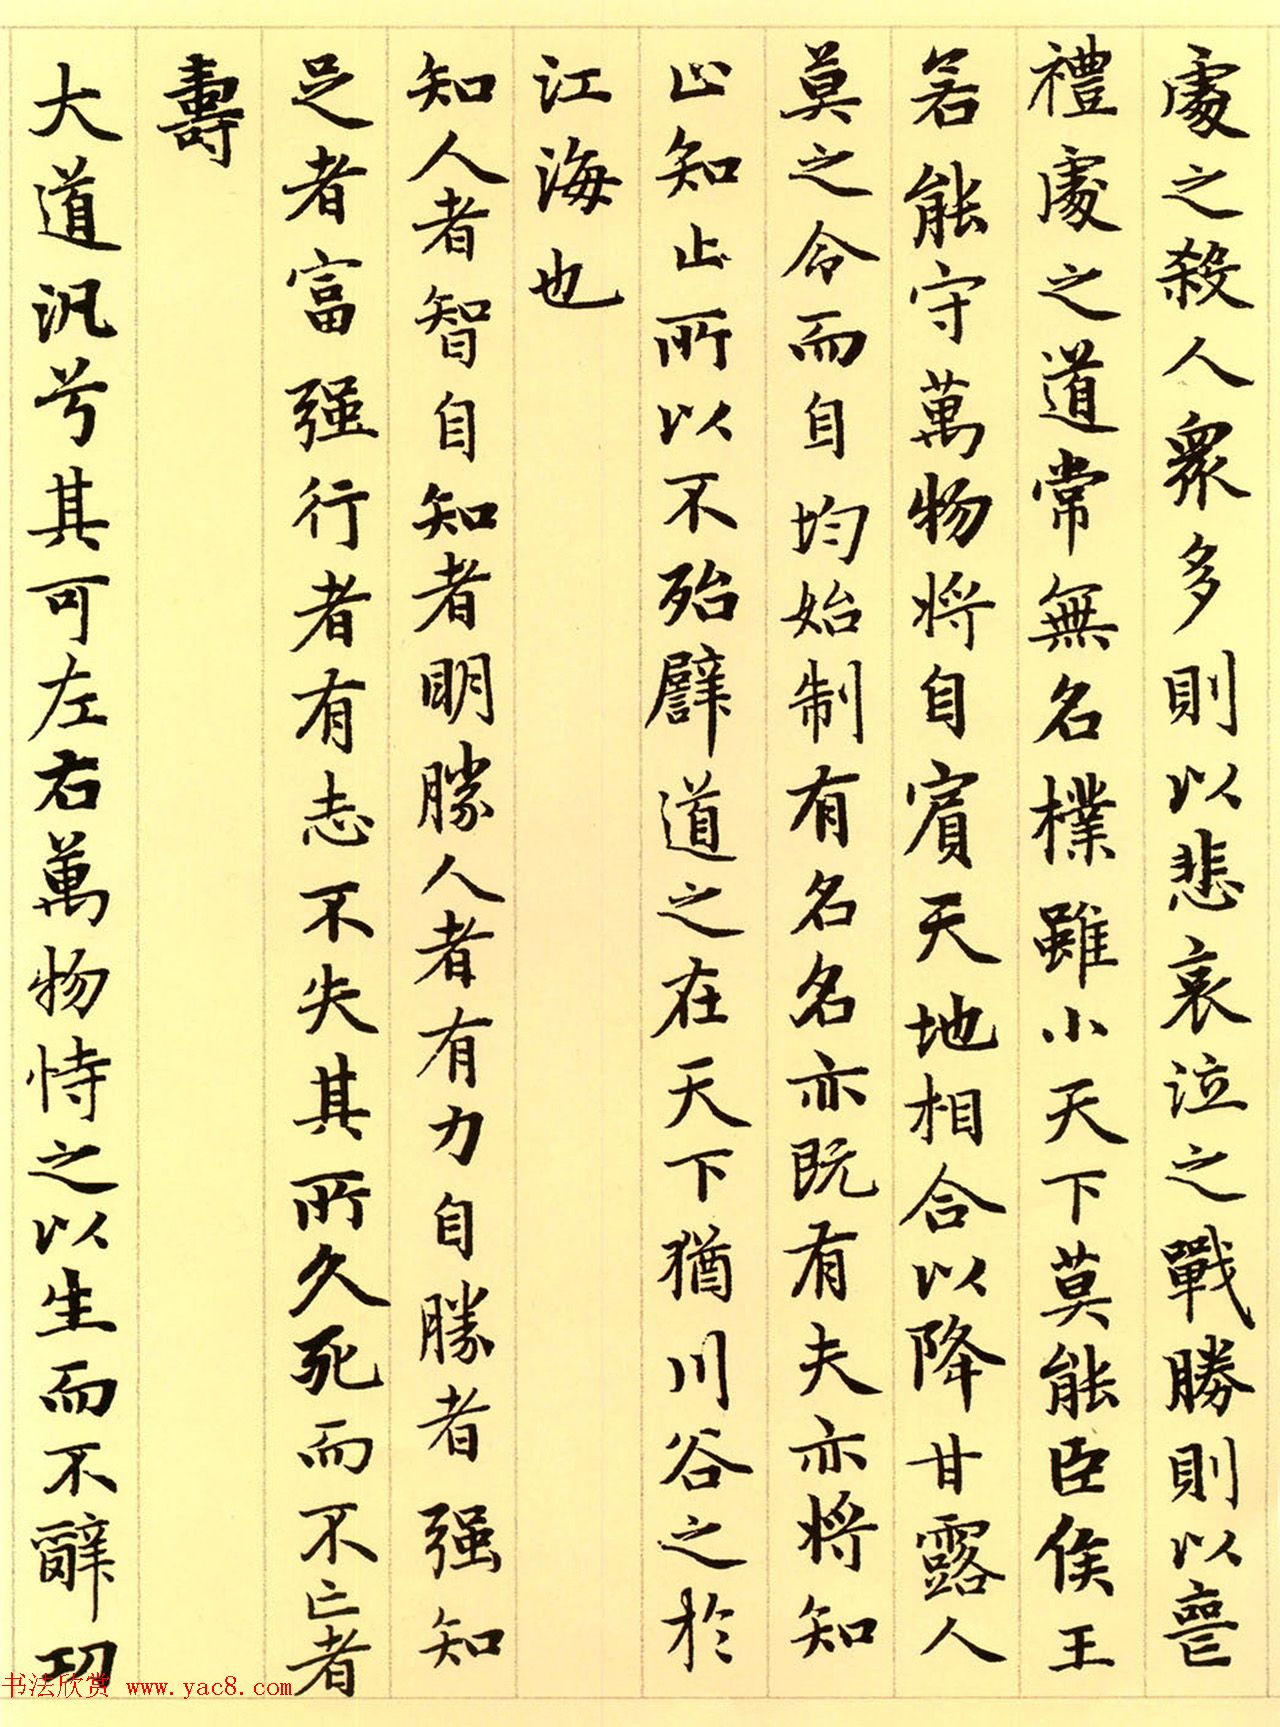 處之殺人衆多則以悲哀泣之戰勝則以喪
禮處之道常無名樸雖小天下莫能臣侯王
若能守萬物將自賓天地相合以降甘露人
莫之令而自均始制有名名亦既有夫亦將知
止知止所以不殆譬道之在天下猶川谷之於
江海也
知人者智自知者明勝人者有力自勝者强知
足者富强行者有志不失其所久死而不亡者
壽
大道汎兮其可左右萬物恃之以生而不辭功
书法欣赏 www.yac8.com